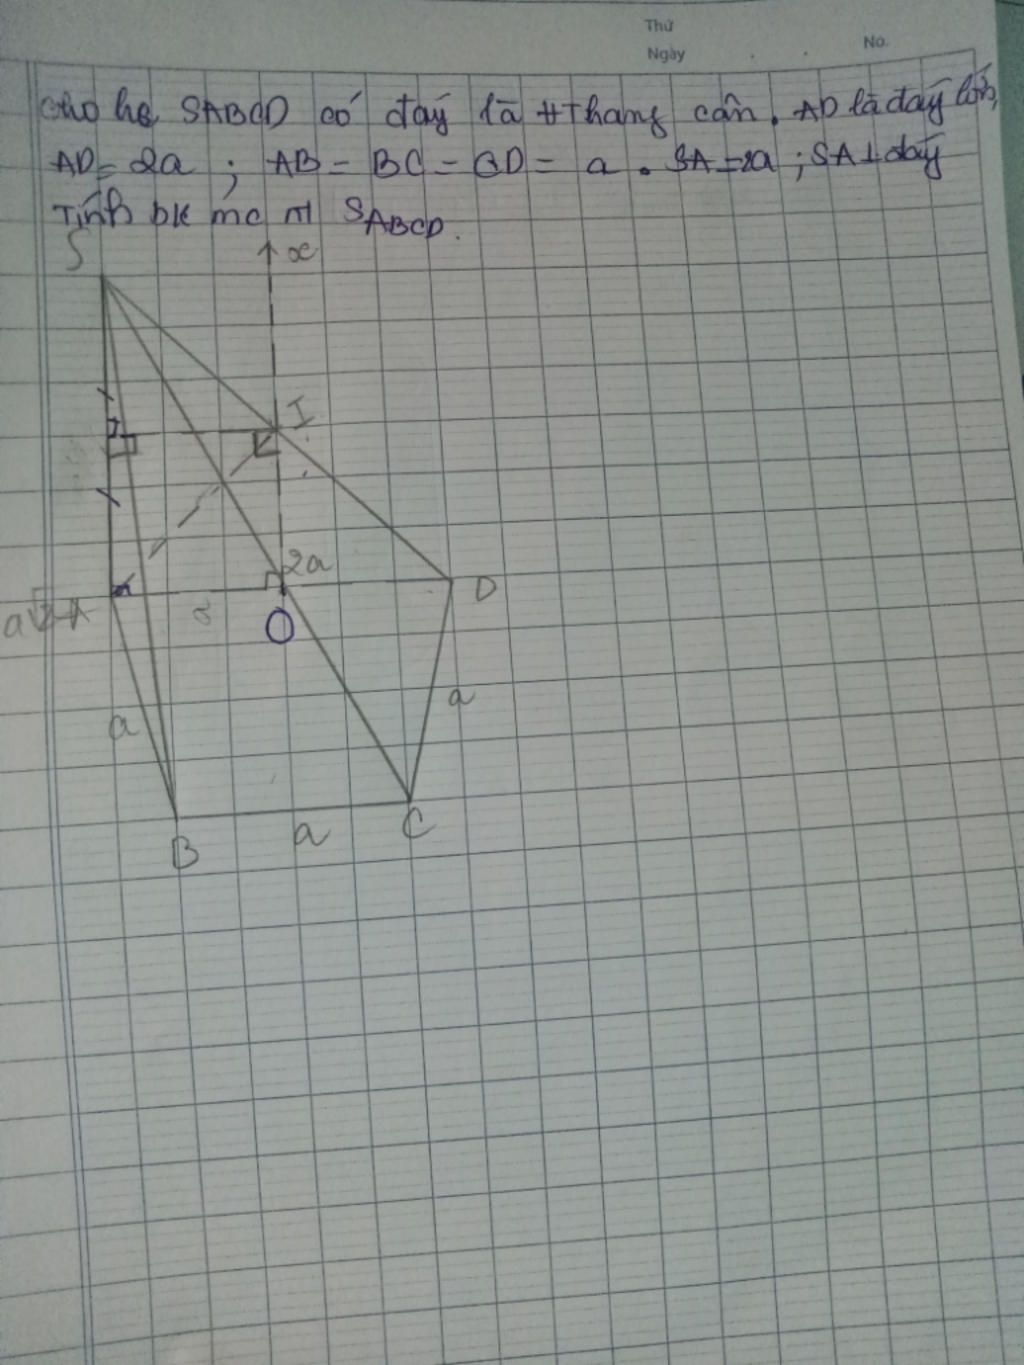 Thứ
Ngày . . No.
Cho hc SABCD có đáy là #Thang cân. AD là đáy lớn,
AD = 2a ; AB = BC = CD = a . SA = 2a ; SA ⊥ đáy
Tính bk mc nt SABCD.
S x
I
2a
A O D
a a
B a C